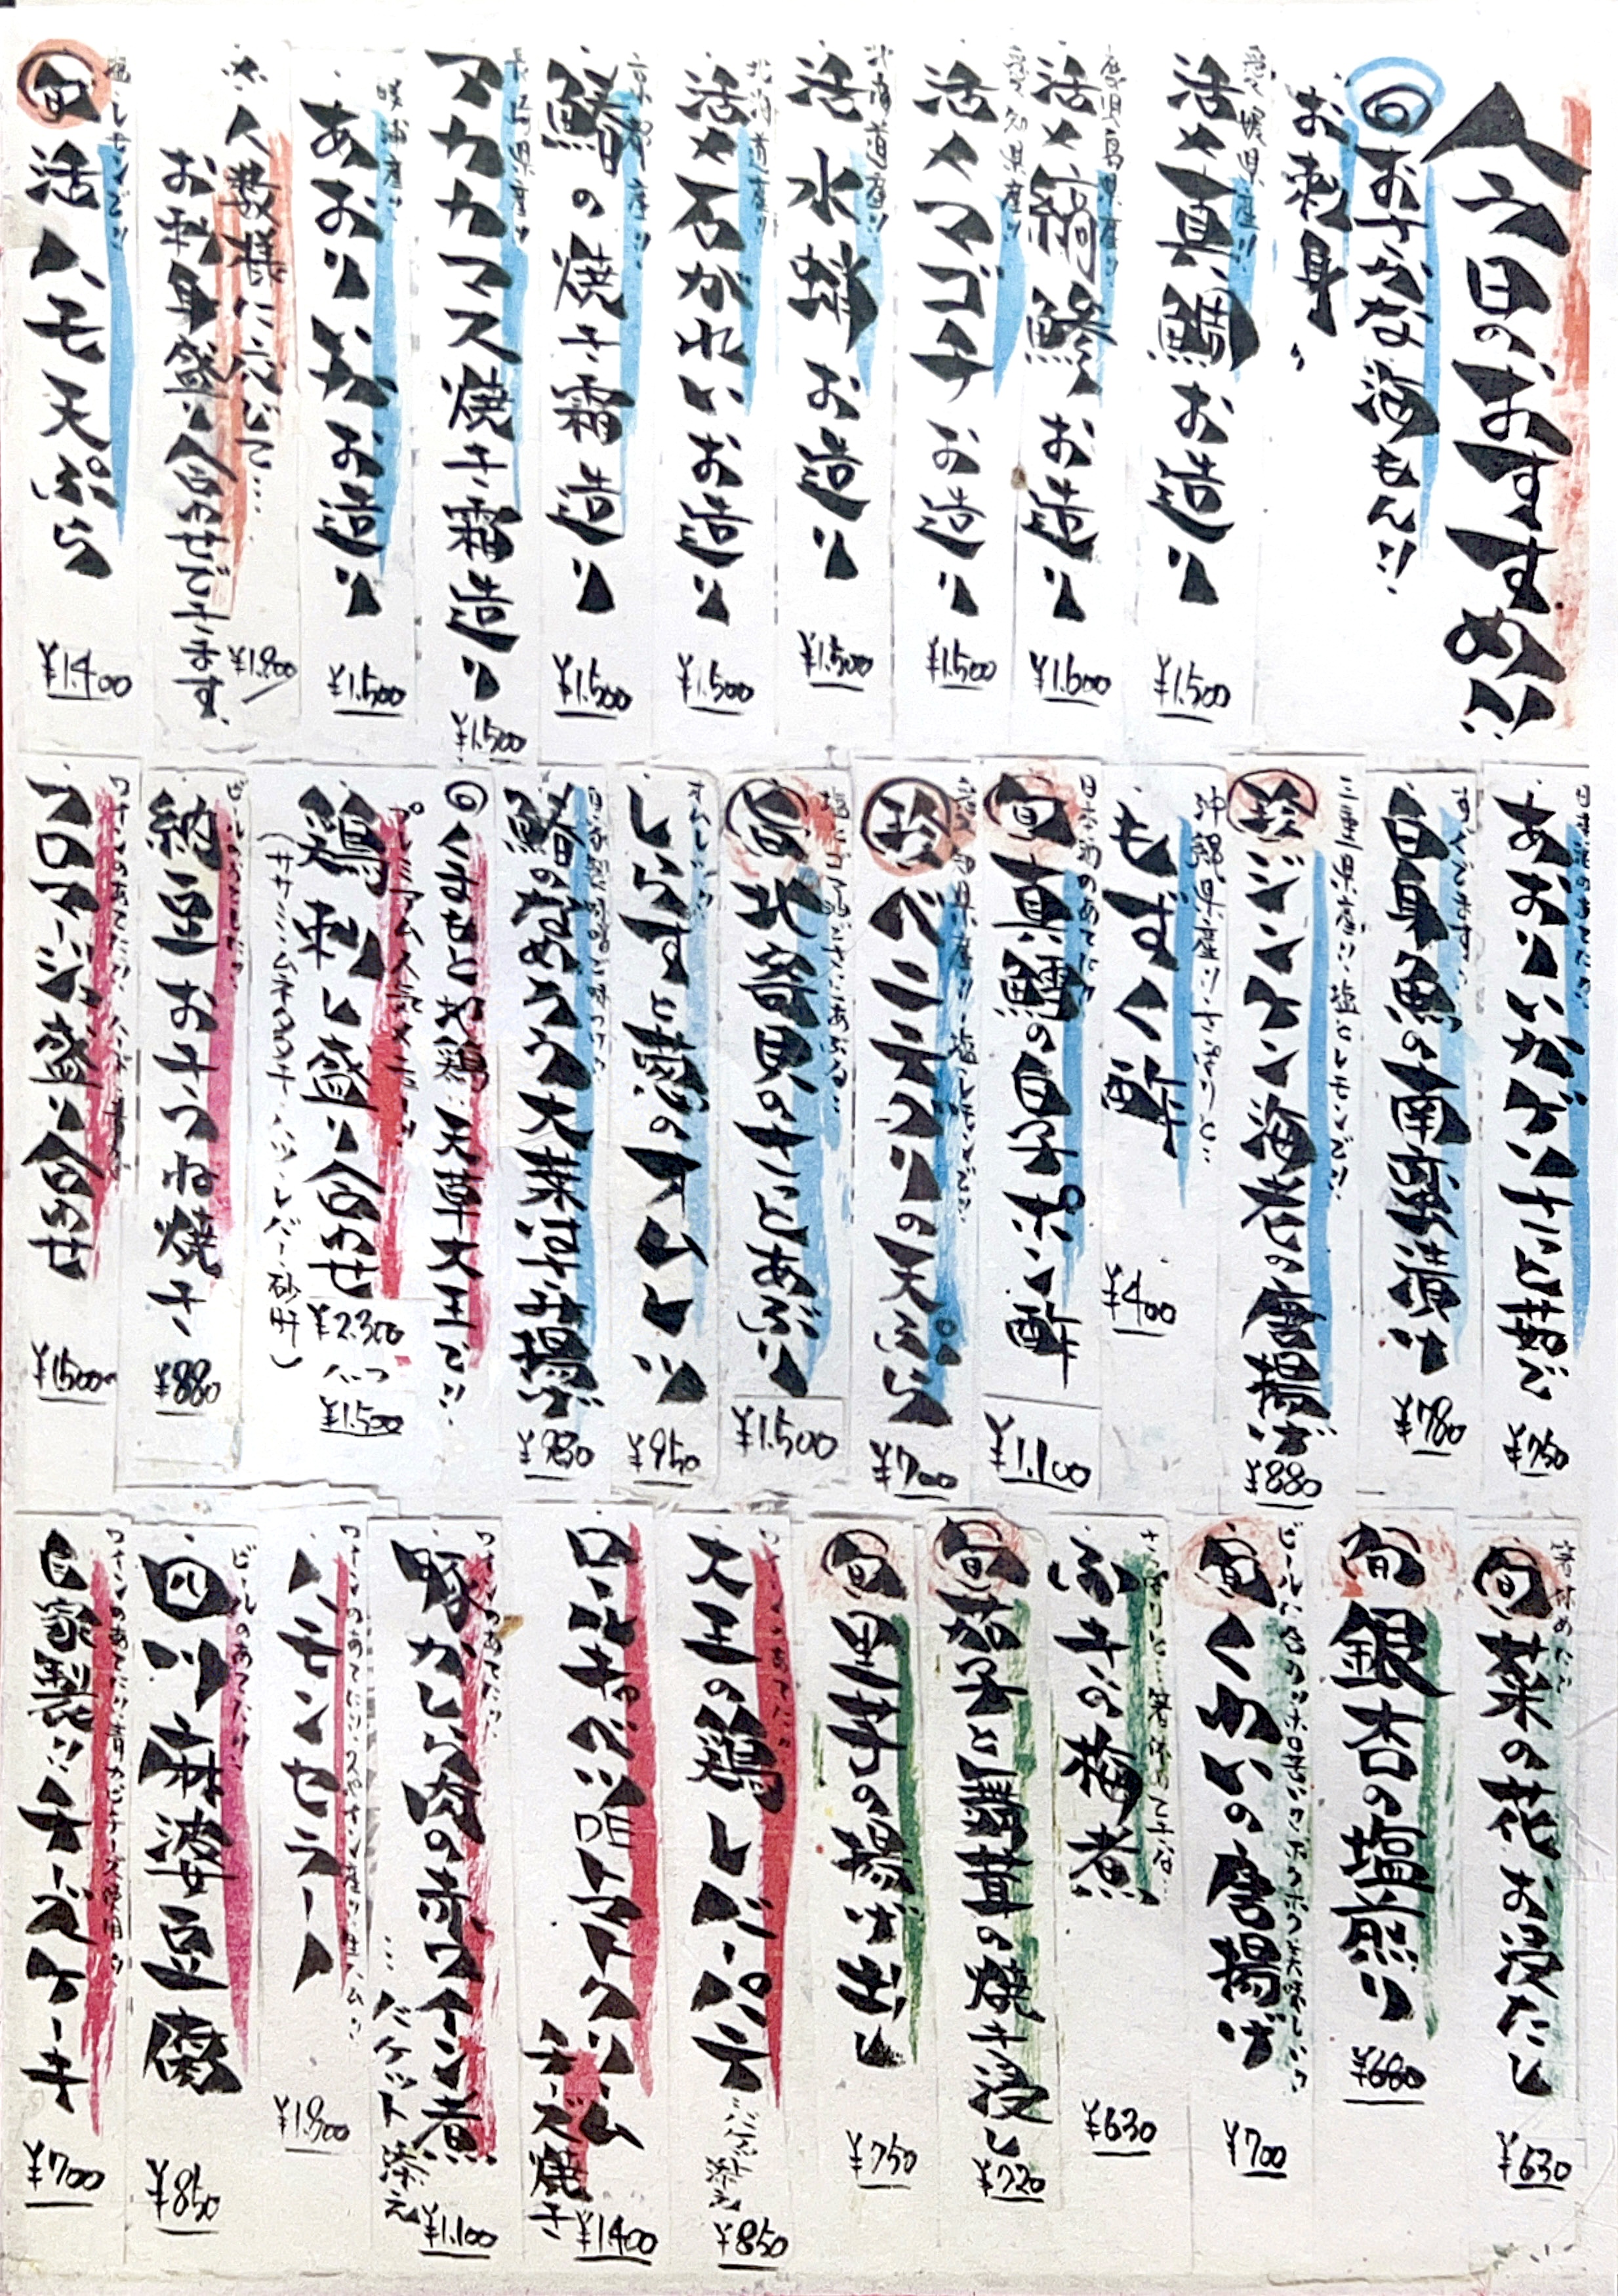 今日のおすすめ!!
おさかな海もん!!
お刺身
愛媛県産!!
活〆真鯛お造り
¥1.500
鹿児島県産!!
活〆縞鯵お造り
¥1.600
愛知県産!!
活〆マゴチお造り
¥1.500
北海道産!!
活水蛸お造り
¥1.500
北海道産!!
活〆石がれいお造り
¥1.500
京都産!!
鰆の焼き霜造り
¥1.500
長崎県産!!
アカカマス焼き霜造り
¥1.500
あおりいかお造り
¥1.500
※人数様に応じて…
お刺身盛り合わせできます。
¥1.900
塩レモンで!!
旬 活ハモ天ぷら
¥1.400
あおりいかげそさっと茹で
¥750
白身魚の南蛮漬け
¥780
三重県産!!塩とレモンで!!
珍 ジンケン海老の唐揚げ
¥880
沖縄県産!!さっぱりと…
もずく酢
¥400
日本酒のあてに!!
旬 真鱈の白子ポン酢
¥1.100
愛知県産!!塩レモンで!!
珍 ベニテグリの天ぷら
¥700
旨 北寄貝のさっとあぶり
¥1.500
しらすと葱のオムレツ
¥950
鰆のなめろう大葉はさみ揚げ
¥930
くまもと地鶏 天草大王で!!
プレミアム人気メニュー!!
鶏刺し盛り合わせ
(ササミ・ムネ・モモ・ハツ・レバー・砂肝)
¥2.300
ハーフ
¥1.500
ビールのあてに!!
納豆おきつね焼き
¥880
フロマージュ盛り合わせ
¥1500~
箸休めに!!
旬 菜の花お浸たし
¥630
旬 銀杏の塩煎り
¥680
旬 くわいの唐揚げ
¥700
さっぱりと…箸休めてきな…
ふきの梅煮
¥630
旬 茄子と舞茸の焼き浸し
¥720
旬 里芋の揚げ出し
¥750
ワインのあてに!!
大王の鶏レバーパテ
バケット添え
¥850
ロールキャベツDEトマトクリーム
チーズ焼き
¥1.400
ワインのあてに!!
豚かしら肉の赤ワイン煮
…バケット添え
¥1.100
ワインのあてに!!スペイン産!!生ハム!!
ハモンセラーノ
¥1.900
ビールのあてに!!
四川麻婆豆腐
¥850
ワインのあてに!!青カビチーズ使用!!
自家製!!チーズケーキ
¥700